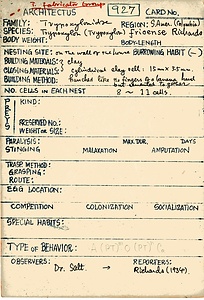 T. fabricator group
ARCHITECTUS 927 CARD No.
FAMILY: Trypoxylonidae REGION: S. Amer. (Colombia)
SPECIES: Trypoxylon (Trypoxylon) frioense Richards
BODY WEIGHT: BODY-LENGTH
NESTING SITE: on the wall of the house BURROWING HABIT (—)
BUILDING MATERIALS: clay
CLOSING MATERIALS: cylindrical clay cell: 15mm x 3.5mm.
BUILDING METHOD: bunched like fingers to a human hand
NO. CELLS IN EACH NEST 8 ~ 11 cells.
PREYS KIND:
PRESERVED NO.:
WEIGHT OR SIZE:
PARALYSIS: MAX. DUR. DAYS
STINGING MALAXATION AMPUTATION
TRASP METHOD:
GRASPING:
ROUTE:
EGG LOCATION:
COMPETITION COLONIZATION SOCIALIZATION
SPECIAL HABITS:
TYPE OF BEHAVIOR:
OBSERVERS: REPORTERS:
Dr. Salt → Richards (1934).